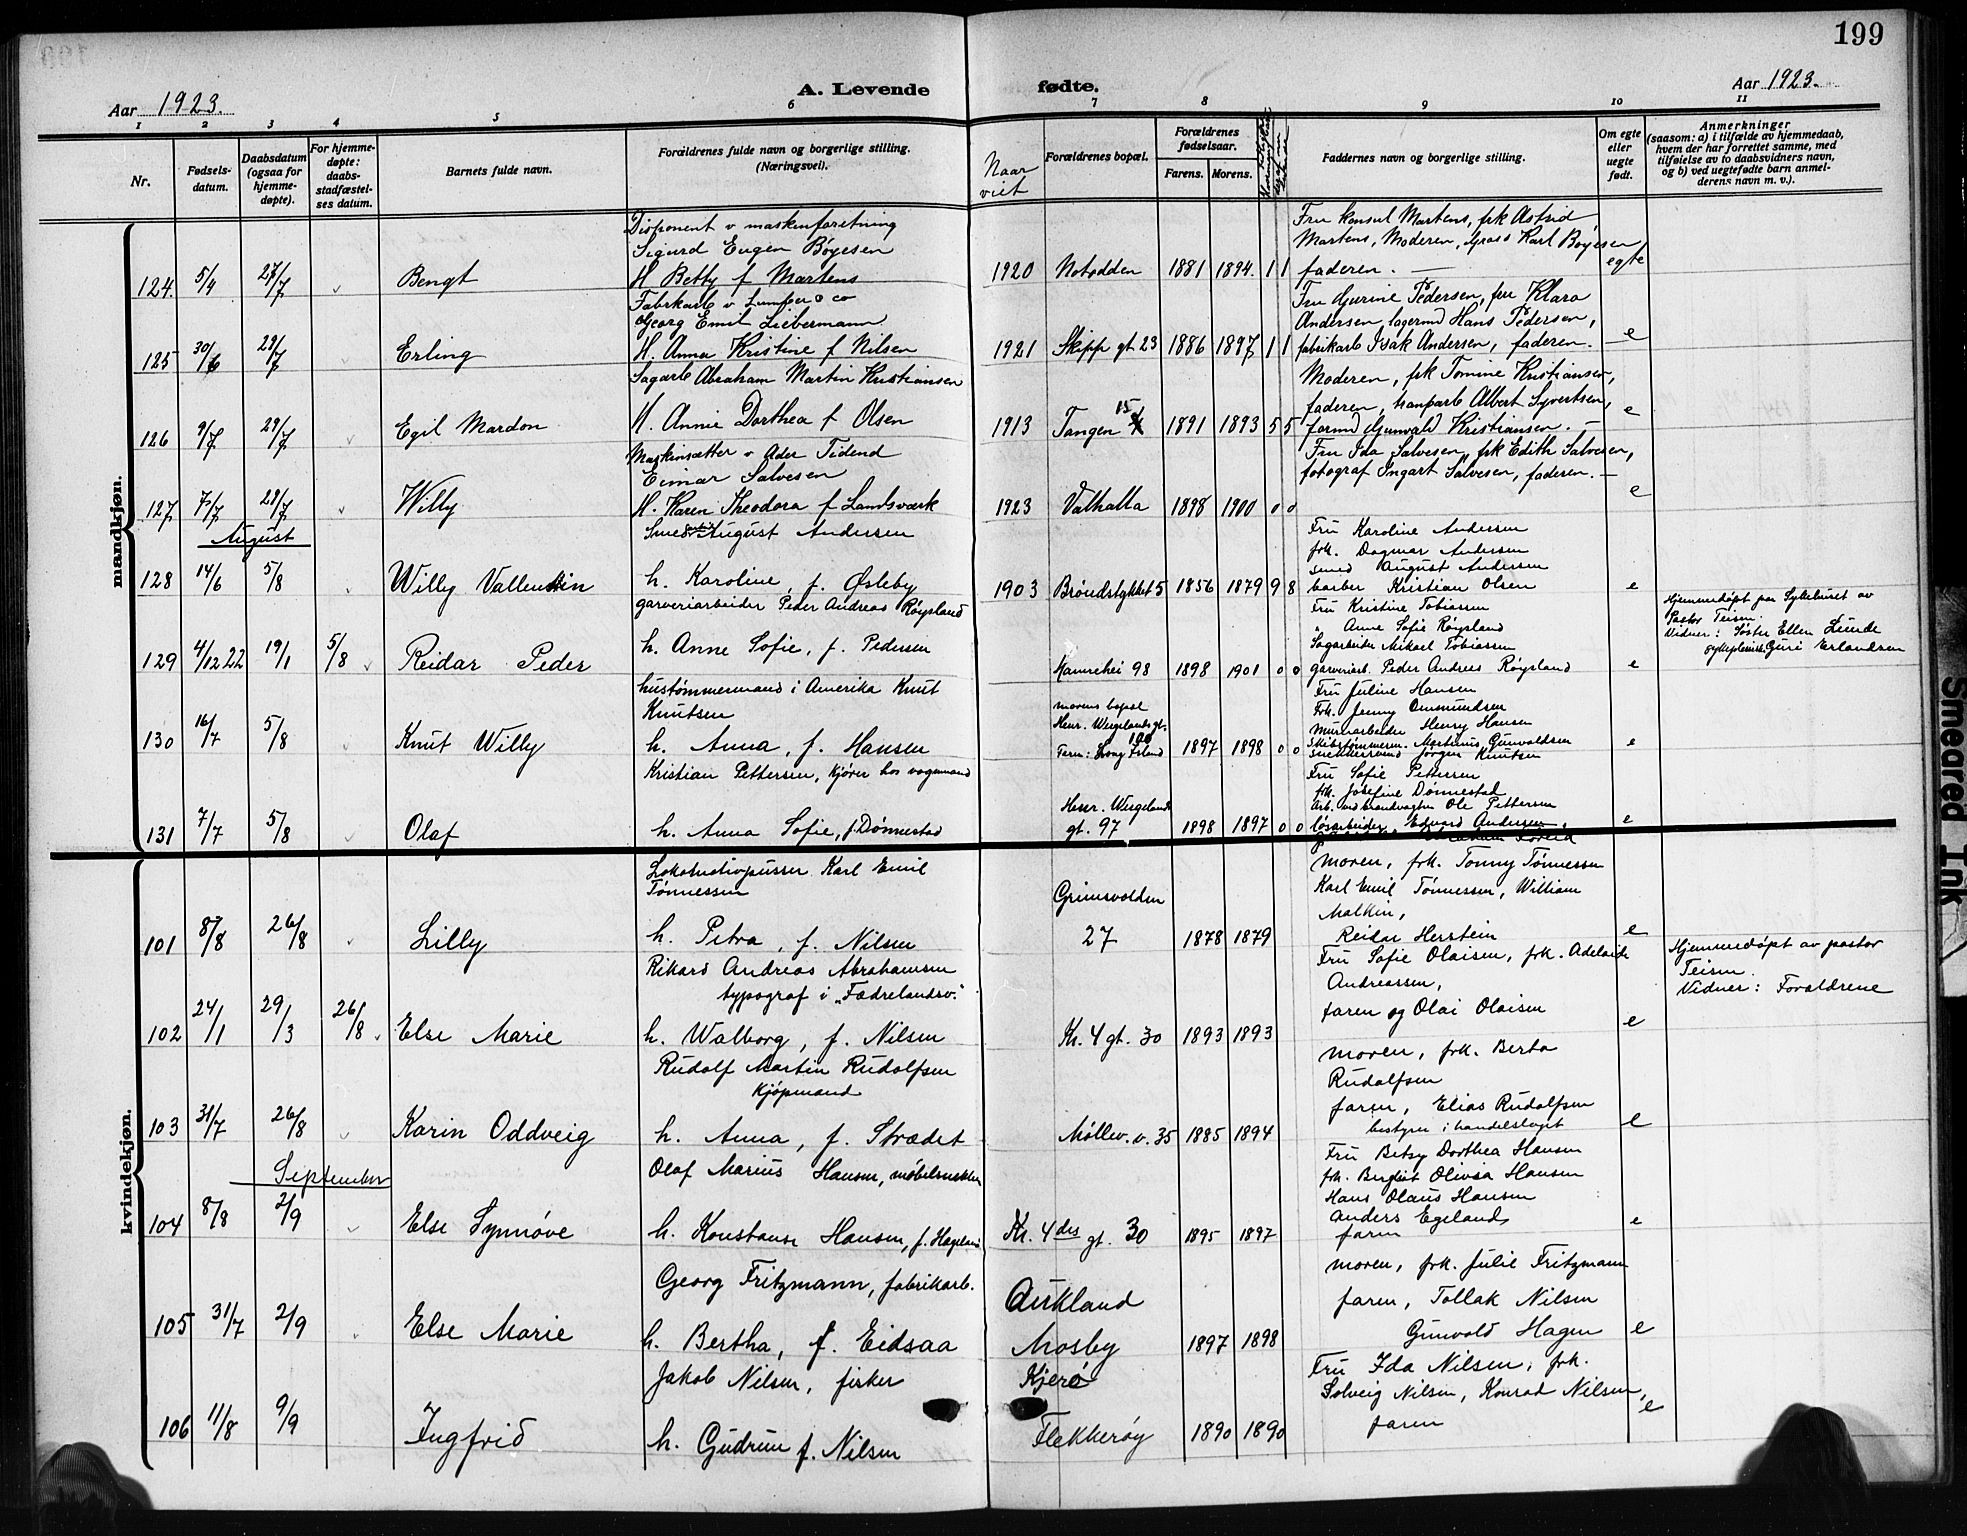 199
Aar 1923.
A. Levende fødte.
Aar 1923.
1 2 3 4 5 6 7 8 9 10 11
Nr.
Fødsels-
datum.
Daabsdatum
(ogsaa for
hjemme-
døpte).
For hjemme-
døpte:
daabs-
stadfæstel-
ses datum.
Barnets fulde navn.
Forældrenes fulde navn og borgerlige stilling.
(Næringsvei).
Naar
viet
Forældrenes bopæl.
Forældrenes
fødselsaar.
Farens. Morens.
Faddernes navn og borgerlige stilling.
Om egte
eller
uegte
født.
Anmerkninger
(saasom: a) i tilfælde av hjemmedaab,
hvem der har forrettet samme, med
tilføielse av to daabsvidners navn,
og b) ved uegtefødte barn anmel-
derens navn m. v.).
mandkjøn.
Disponent v maskinforetning
Sigurd Eugen Bøyesen
124. 5/4 27/7 Bengt
H Betty f Martens
1920 Notodden 1881 1894. 1 1
Fru konsul Martens, frk Astrid
Martens, Moderen, Gross Karl Bøyesen
faderen. —
egte
Fabrkarb v Lumper & co
Georg Emil Liebermann.
125 30/6 29/7 Erling
H. Anna Kristine f Nilsen
1921 Skipp gt 23 1886 1897 1 1
Fru Gurine Pedersen, fru Klara
Andersen, lagermd Hans Pedersen,
fabrikarb Isak Andersen, faderen. —
e
Sagarb Abraham Martin Kristiansen
126 9/7 29/7 Egil Mardon
H. Annie Dorthea f Olsen
1913 Tangen 15 1891 1893 5 5
Moderen, frk Tomine Kristiansen,
faderen, tranparb Albert Syvertsen,
formd Gunvald Kristiansen. —
e
Maskinsætter v Ader Tidend
Eimar Salvesen
127 7/7 29/7 Willy
H. Karen Theodora f Landsværk
1923 Valhalla 1898 1900 0 0
Fru Ida Salvesen, frk Edith Salvesen,
fotograf Ingart Salvesen, faderen. —
e
August
Smed August Andersen
128 14/6 5/8 Willy Vallentin
h. Karoline, f. Øsleby
1903 Brøndstykket 5 1856 1879 9 8
Fru Karoline Andersen
frk. Dagmar Andersen
smed August Andersen
barber Kristian Olsen
e
garveriarbeider Peder Andreas Røysland
129 4/12 22 19/1 5/8 Reidar Peder
h. Anne Sofie, f. Pedersen
Hannehei 98 1898 1901 0 0
Fru Kristine Tobiassen
" Anne Sofie Røysland
Sagarbeider Mikael Tobiassen
garveriarb. Peder Andreas Røysland
e
Hjemmedøpt paa Sykehuset av
Pastor Teisen.
Vidner: Søster Ellen Lunde
sykepleiersk. Guri Erlandsen
hustømmermand i Amerika Knut
Knutsen
130 16/7 5/8 Knut Willy
h. Anna, f. Hansen
morens bopæl
Henr. Wergelands gt.
106
Faren: Long Island 1897 1898 0 0
Fru Juline Hansen
Frk. Jenny Omundsen
Murerarbeider Henry Hansen
Skibstømmerm. Martinius Gunvaldsen
snekkersvend Jørgen Knutsen
e
Kristian Pettersen, kjører hos vognmand
131 7/7 5/8 Olaf
h. Anna Sofie, f. Dønnestad
Henr. Wergelands
gt. 97 1898 1897 0 0
Fru Sofie Pettersen
frk. Josefine Dønnestad
arb. ved brandvagten Ole Pettersen
løsarbeider Edvard Andersen
e
kvindekjøn.
Lokomotivpusser Karl Emil
Tønnessen
101 8/8 26/8 Lilly
h. Petra, f. Nilsen
Grimsvolden
27 1878 1879
moren, frk. Tonny Tønnessen
Karl Emil Tønnessen, William
Malkin,
Reidar Herstein
e
Rikard Andreas Abrahamsen
typograf i „Fædrelandsv."
102 24/1 29/3 26/8 Else Marie
h. Walborg, f. Nilsen
Kr. 4 gt. 30 1893 1893
Fru Sofie Olaisen, frk. Adelaide
Andreassen,
faren og Olai Olaisen
e
Hjemmedøpt av pastor
Teisen.
Vidner: Forældrene
Rudolf Martin Rudolfsen
Kjøpmand
103 31/7 26/8 Karin Oddveig
h. Anna, f. Strædet
Møllev. v. 35 1885 1894
moren, frk. Berta
Rudolfsen
faren, Elias Rudolfsen
bestyrer i handelslaget
e
September
Olaf Marius Hansen, møbelsnekker
104 8/8 2/9 Else Synnøve
h. Konstanse Hansen, f. Hageland
Kr. 4des gt. 30 1895 1897
Fru Betsy Dorthea Hansen
frk. Bergliot Olivia Hansen
Hans Olaus Hansen
Anders Egeland
faren
e
Georg Fritzmann, fabrikarb.
105 31/7 2/9 Else Marie
h. Bertha, f. Eidsaa
Aukland
Mosby 1897 1898
moren, frk. Julie Fritzmann
faren, Tollak Nilsen
Gunvald Hagen
e
Jakob Nilsen, fisker
106 11/8 9/9 Ingfrid
h. Gudrun f. Nilsen
Kjerø
Flekkerøy 1890 1890
Fru Ida Nilsen, frk.
Solveig Nilsen, Konrad Nilsen,
faren
e
Smeared Ink